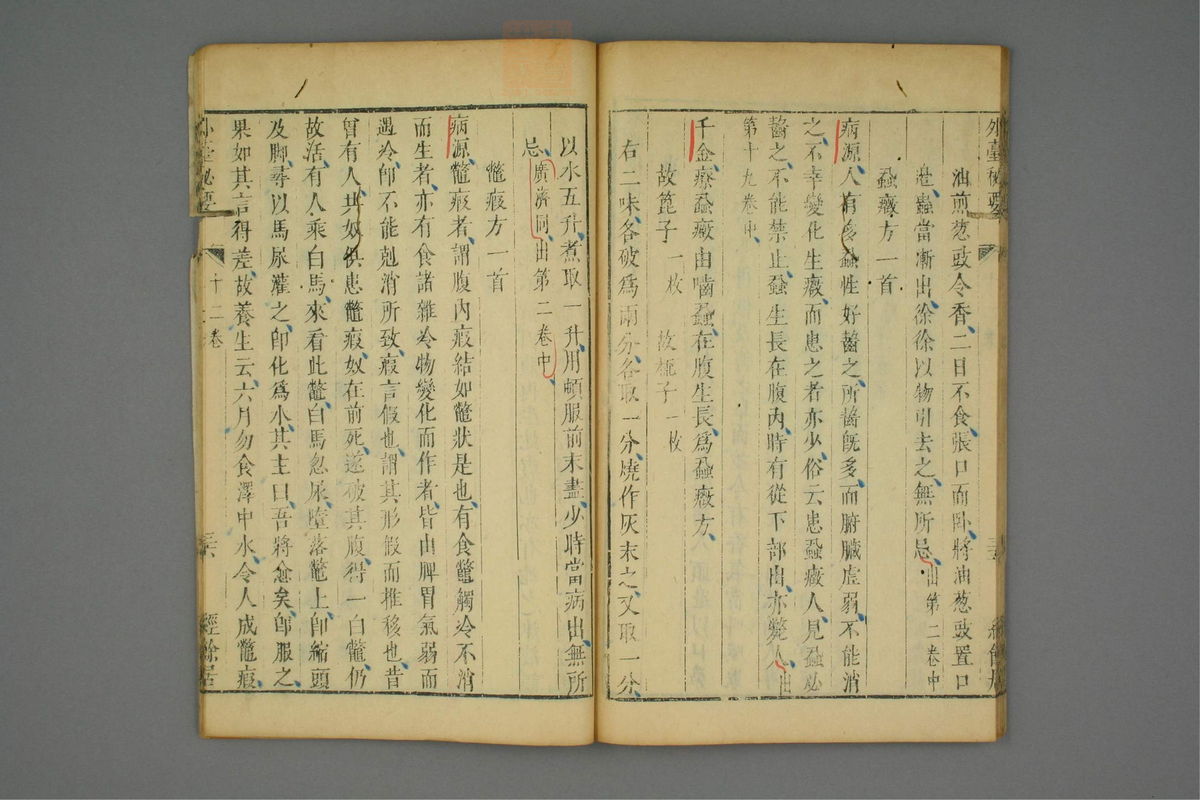 外臺秘要
油煎葱豉令香二日不食張口而臥將油葱豉置口
邊蟲當漸出徐徐以物引去之無所忌出第二卷中
蝨癥方一首
病源人有多蝨性好齧之所齧旣多而腑臟虛弱不能消
之不幸變化生癥而患之者亦少俗云患蝨癥人見蝨必
齧之不能禁止蝨生長在腹內時有從下部出亦斃人出
第十九卷中
千金療蝨癥由嚙蝨在腹生長爲蝨癥方
故篦子一枚 故梳子一枚
右二味各破爲兩分各取一分燒作灰末之又取一分
以水五升煮取一升用頓服前末盡少時當病出無所
忌廣濟同出第二卷中
鼈瘕方一首
病源鼈瘕者謂腹內瘕結如鼈狀是也有食鼈觸冷不消
而生者亦有食諸雜冷物變化而作者皆由脾胃氣弱而
遇冷卽不能剋消所致瘕言假也謂其形假而推移也昔
曾有人共奴俱患鼈瘕奴在前死遂破其腹得一白鼈仍
故活有人乘白馬來看此鼈白馬忽尿墮落鼈上卽縮頭
及脚尋以馬尿灌之卽化爲水其主曰吾將愈矣卽服之
果如其言得差故養生云六月勿食澤中水令人成鼈瘕
小臺秘要 十二卷 三六 經餘居